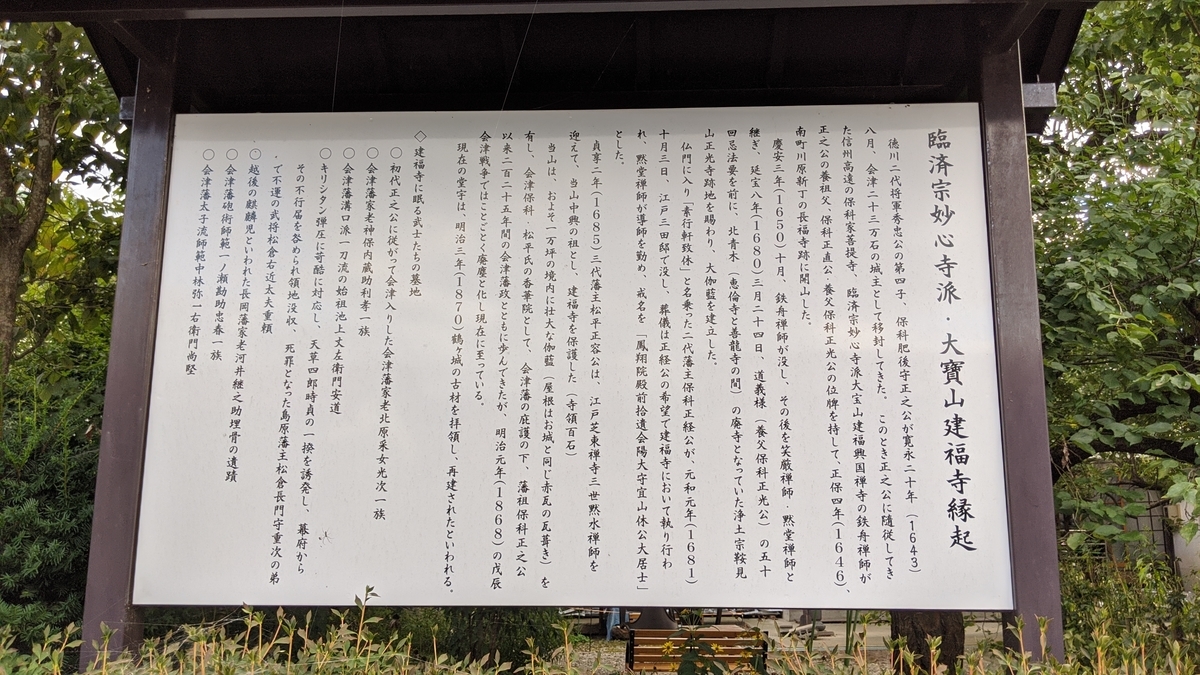 臨済宗妙心寺派・大寶山建福寺縁起
徳川二代将軍秀忠公の第四子、保科肥後守正之公が寛永二十年（1643）
八月、会津二十三万石の城主として移封してきた。このとき正之公に随従してき
た信州高遠の保科家菩提寺、臨済宗妙心寺派大宝山建福興国禅寺の鉄舟禅師が
正之公の養祖父、保科正直公・養父保科正光公の位牌を持して、正保四年（1646）、
南町川原新丁の長福寺跡に開山した。
慶安三年（1650）十月、鉄舟禅師が没し、その後を笑厳禅師・黙堂禅師と
継ぎ、延宝八年（1680）三月二十四日、道義様（養父保科正光公）の五十
回忌法要を前に、北青木（恵倫寺と善龍寺の間）の廃寺となっていた浄土宗鞍見
山正光寺跡地を賜わり、大伽藍を建立した。
仏門に入り「素行軒致休」と名乗った二代藩主保科正経公が、元和元年（1681）
十月三日、江戸三田邸で没し、葬儀は正経公の希望で建福寺において執り行わ
れ、黙堂禅師が導師を勤め、戒名を「鳳翔院殿前拾遺会陽大守宜山休公大居士」
とした。
貞享二年（1685）三代藩主松平正容公は、江戸芝東禅寺三世黙水禅師を
迎えて、当山中興の祖とし、建福寺を保護した（寺領百石）
当山は、およそ一万坪の境内に壮大な伽藍（屋根はお城と同じ赤瓦の瓦葺き）を
有し、会津保科・松平氏の香華院として、会津藩の庇護の下、藩祖保科正之公
以来二百二十五年間の会津藩政とともに歩んできたが、明治元年（1868）の戊辰
会津戦争でほことごとく廃塵と化し現在に至っている。
現在の堂宇は、明治三年（1870）鶴ヶ城の古材を拝領し、再建されたといわれる。
◇建福寺に眠る武士たちの墓地
〇初代正之公に従がって会津入りした会津藩家老北原采女光次一族
〇会津藩家老神保内蔵助利孝一族
〇会津藩溝口派一刀流の始祖池上丈左衛門安道
〇キリシタン弾圧に苛酷に対応し、天草四郎時貞の一揆を誘発し、幕府から
その不行届を咎められ領地没収、死罪となった島原藩主松倉長門守重次の弟
で不運の武将松倉右近太夫重頼
〇越後の麒麟児といわれた長岡藩家老河井継之助埋骨の遺蹟
〇会津藩砲術師範一ノ瀬勘助忠春一族
〇会津藩太子流師範中林弥一右衛門尚堅